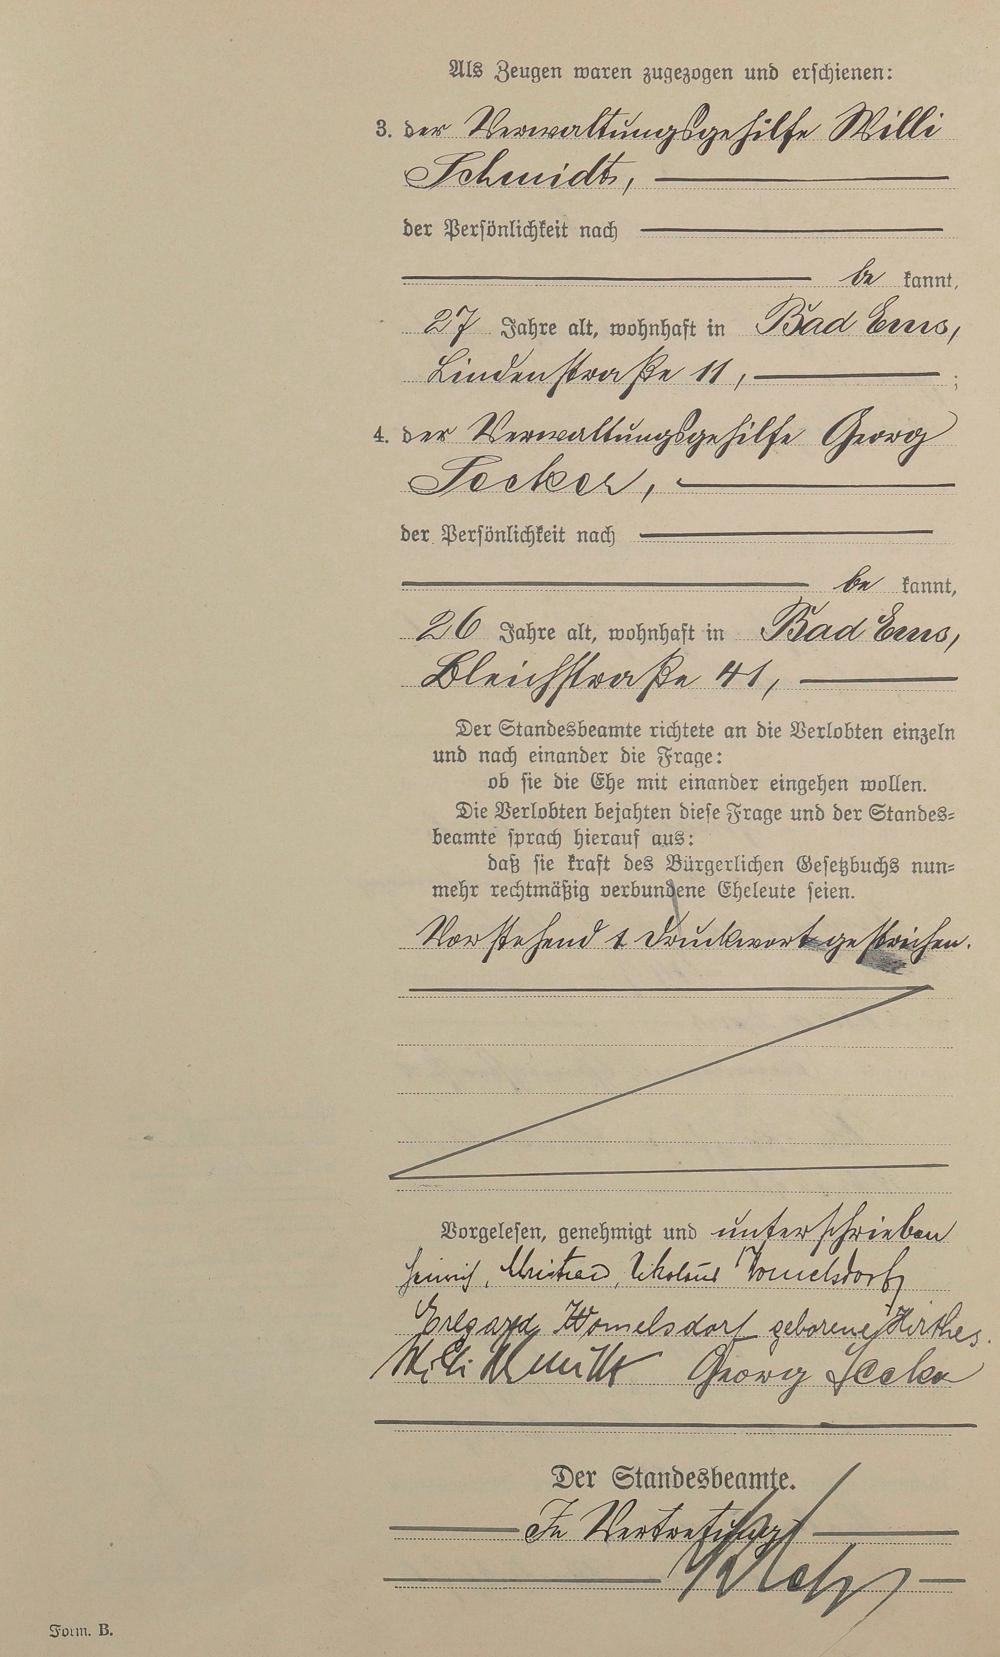 Als Zeugen waren zugezogen und erschienen:
3. der Verwaltungsgehilfe Willi
Schmidt,
der Persönlichkeit nach
be kannt,
27 Jahre alt, wohnhaft in Bad Ems,
Lindenstraße 11, ;
4. der Verwaltungsgehilfe Georg
Secker,
der Persönlichkeit nach
be kannt,
26 Jahre alt, wohnhaft in Bad Ems,
Bleichstraße 41,
Der Standesbeamte richtete an die Verlobten einzeln
und nach einander die Frage:
ob sie die Ehe mit einander eingehen wollen.
Die Verlobten bejahten diese Frage und der Standes=
beamte sprach hierauf aus:
daß sie kraft des Bürgerlichen Gesetzbuchs nun=
mehr rechtmäßig verbundene Eheleute seien.
Vorstehend 1 Druckwort gestrichen.
Vorgelesen, genehmigt und unterschrieben
Heinrich, Christian, Nikolaus Womelsdorf
Erlgard Womelsdorf geborene Hirthes.
Willi Schmidt Georg Secker
Der Standesbeamte.
In Vertretung
Form. B.